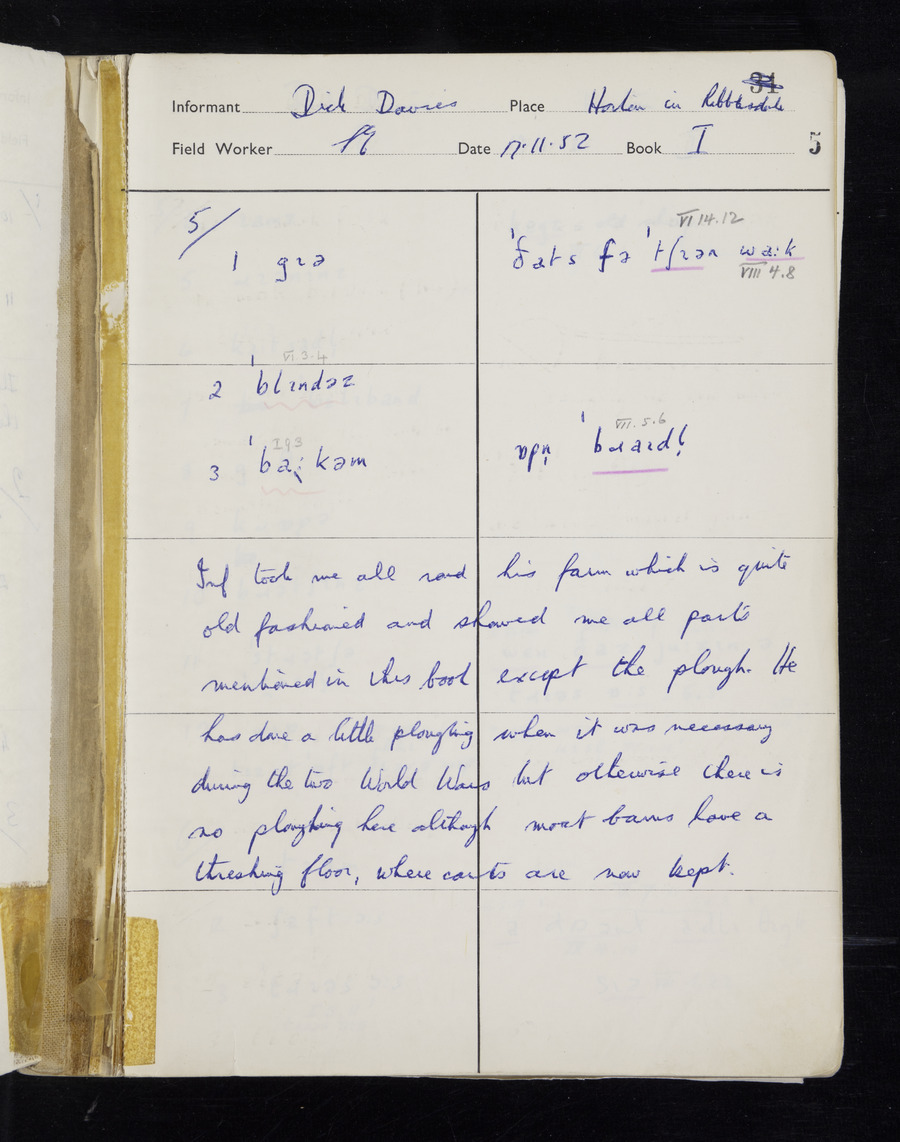 31
Informant Dick Davies Place Horton in Ribblesdale
Field Worker Date 17.11.52 Book I 5
5/
VI 14.12
1 gɪə ˈðats fə ˈtʃɪən wa:k
VIII 4.8
VI.3.4
2 ˈblɪndəz
I 9 3 VII.5.6
3 ˈba:kəm ˈbɑaɪd!
Inf took me all round his farm which is quite
old fashioned and showed me all parts
mentioned in this book except the plough. He
has done a little ploughing when it was necessary
during the two World Wars but otherwise there is
no ploughing here although most barns have a
threshing floor, where carts are now kept.